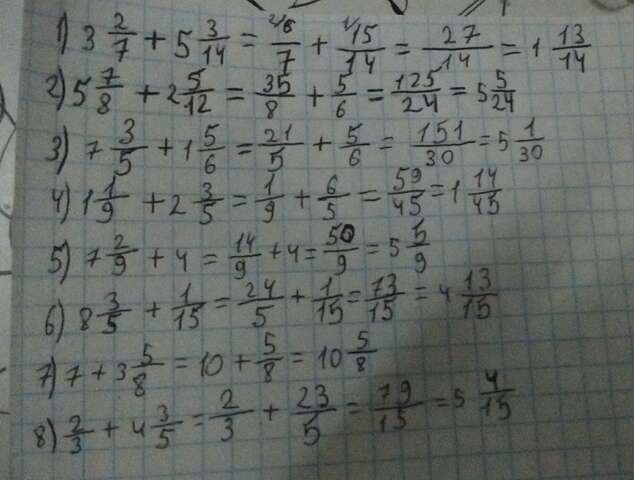 1) 3 2/7 + 5 3/14 = 6/7 + 15/14 = 27/14 = 1 13/14
2) 5 7/8 + 2 5/12 = 35/8 + 5/6 = 125/24 = 5 5/24
3) 7 3/5 + 1 5/6 = 21/5 + 5/6 = 151/30 = 5 1/30
4) 1 1/9 + 2 3/5 = 1/9 + 6/5 = 59/45 = 1 14/45
5) 7 2/9 + 4 = 14/9 + 4 = 50/9 = 5 5/9
6) 8 3/5 + 1/15 = 24/5 + 1/15 = 73/15 = 4 13/15
7) 7 + 3 5/8 = 10 + 5/8 = 10 5/8
8) 2/3 + 4 3/5 = 2/3 + 23/5 = 79/15 = 5 4/15